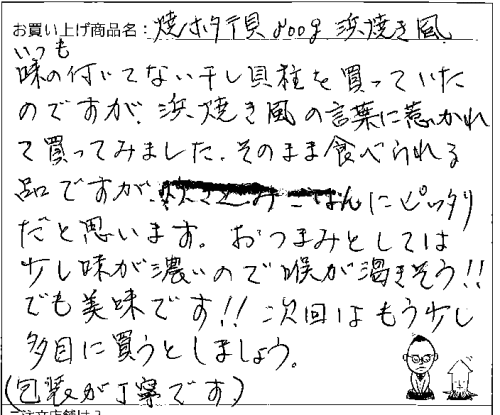 お買い上げ商品名：焼ホタテ貝800g 浜焼き風
いつも
味の付いてない干し貝柱を買っていた
のですが、浜焼き風の言葉に惹かれ
て買ってみました。そのまま食べられる
品ですが、炊きこみごはんにピッタリ
だと思います。おつまみとしては
少し味が濃いので喉が渇きそう!!
でも美味です!!次回はもう少し
多目に買うとしましょう。
(包装が丁寧です)